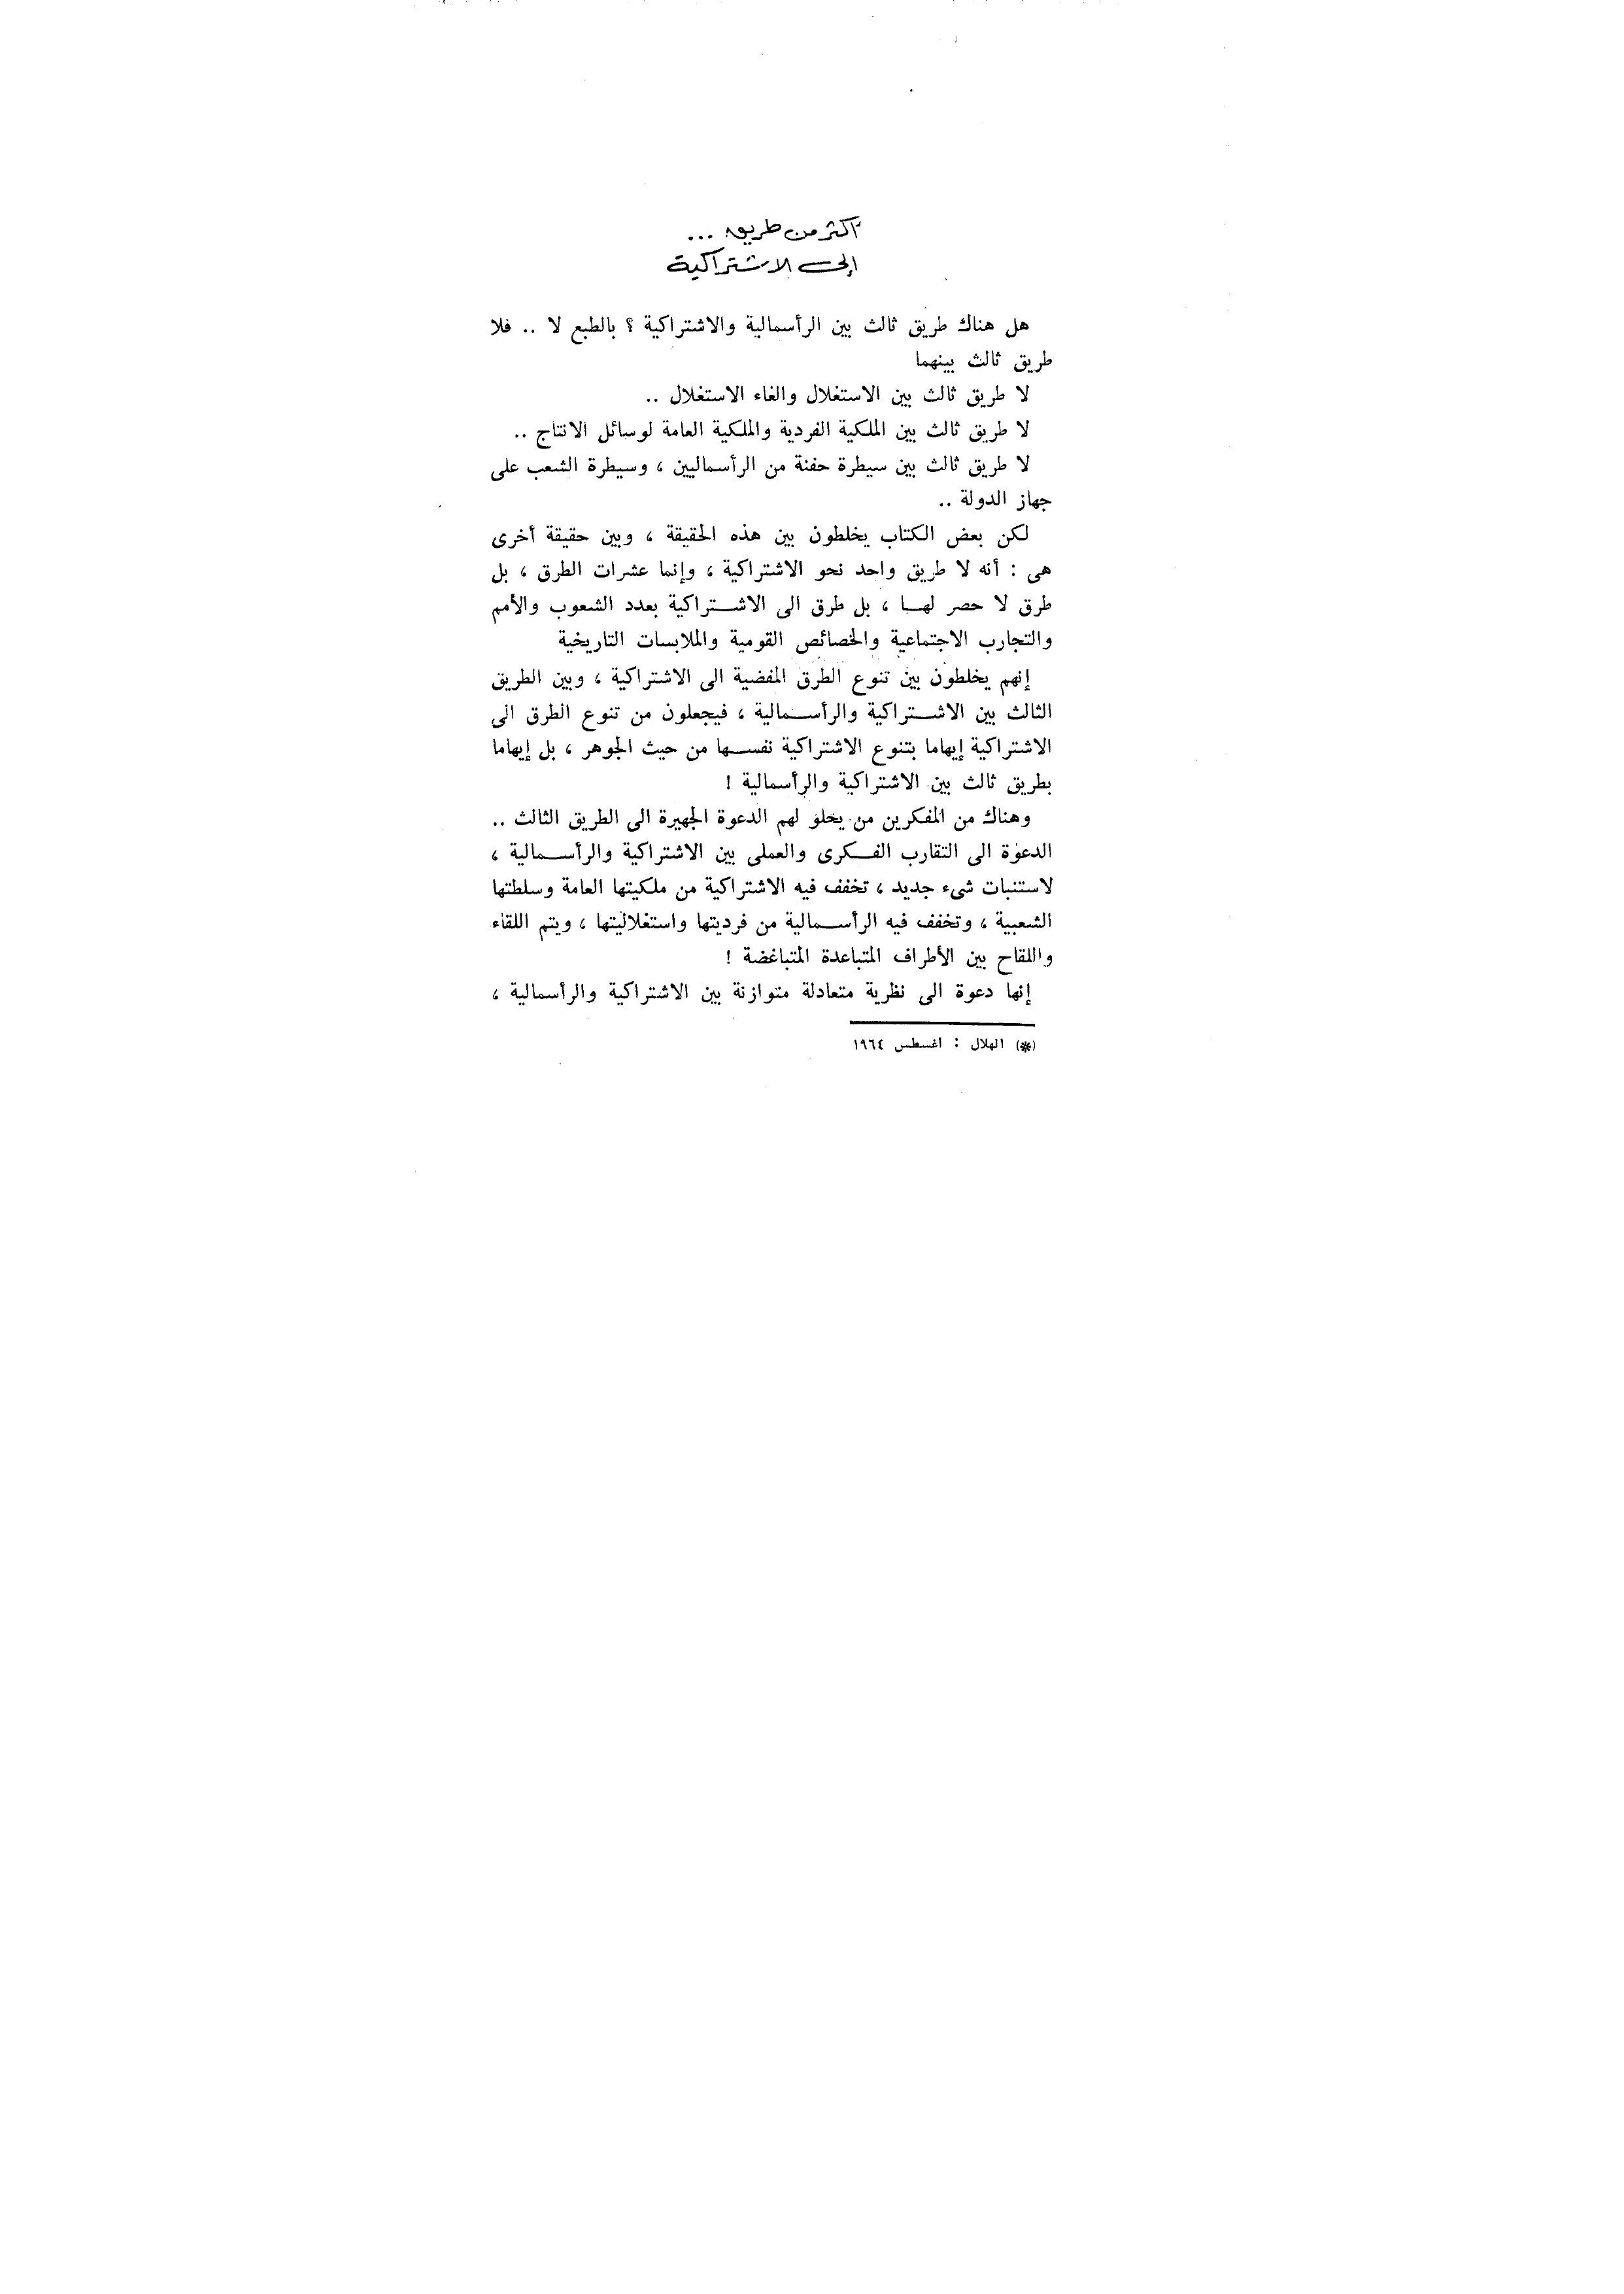 أكثر من طريق ...
إلى الاشتراكية
هل هناك طريق ثالث بين الرأسمالية والاشتراكية ؟ بالطبع لا .. فلا
طريق ثالث بينهما
لا طريق ثالث بين الاستغلال والغاء الاستغلال ..
لا طريق ثالث بين الملكية الفردية والملكية العامة لوسائل الانتاج ..
لا طريق ثالث بين سيطرة حفنة من الرأسماليين ، وسيطرة الشعب على
جهاز الدولة ..
لكن بعض الكتاب يخلطون بين هذه الحقيقة ، وبين حقيقة أخرى
هى : أنه لا طريق واحد نحو الاشتراكية ، وإنما عشرات الطرق ، بل
طرق لا حصر لهــا ، بل طرق الى الاشــتراكية بعدد الشعوب والأمم
والتجارب الاجتماعية والخصائص القومية والملابسات التاريخية
إنهم يخلطون بين تنوع الطرق المفضية الى الاشتراكية ، وبين الطريق
الثالث بين الاشــتراكية والرأســمالية ، فيجعلون من تنوع الطرق الى
الاشتراكية إيهاما بتنوع الاشتراكية نفســها من حيث الجوهر ، بل إيهاما
بطريق ثالث بين الاشتراكية والرأسمالية !
وهناك من المفكرين من يحلو لهم الدعوة الجهيرة الى الطريق الثالث ..
الدعوة الى التقارب الفــكرى والعملى بين الاشتراكية والرأســمالية ،
لاستنبات شىء جديد ، تخفف فيه الاشتراكية من ملكيتها العامة وسلطتها
الشعبية ، وتخفف فيه الرأســمالية من فرديتها واستغلاليتها ، ويتم اللقاء
واللقاح بين الأطراف المتباعدة المتباغضة !
إنها دعوة الى نظرية متعادلة متوازنة بين الاشتراكية والرأسمالية ،
(*) الهلال : اغسطس ١٩٦٤